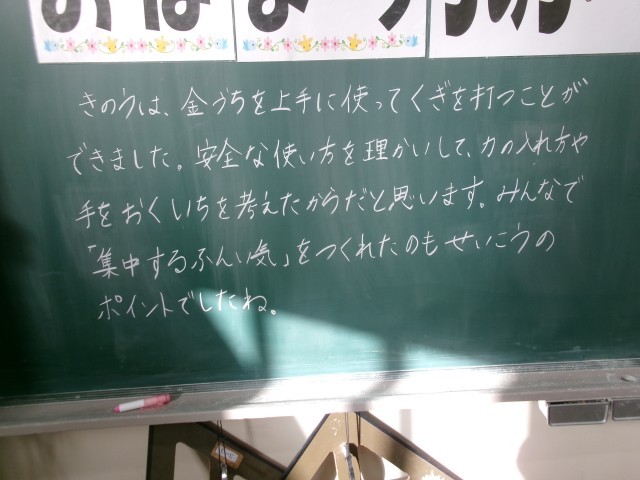 きのうは、金づちを上手に使ってくぎを打つことが
できました。安全な使い方を理かいして、力の入れ方や
手をおくいちを考えたからだと思います。みんなで
「集中するふんい気」をつくれたのもせいこうの
ポイントでしたね。